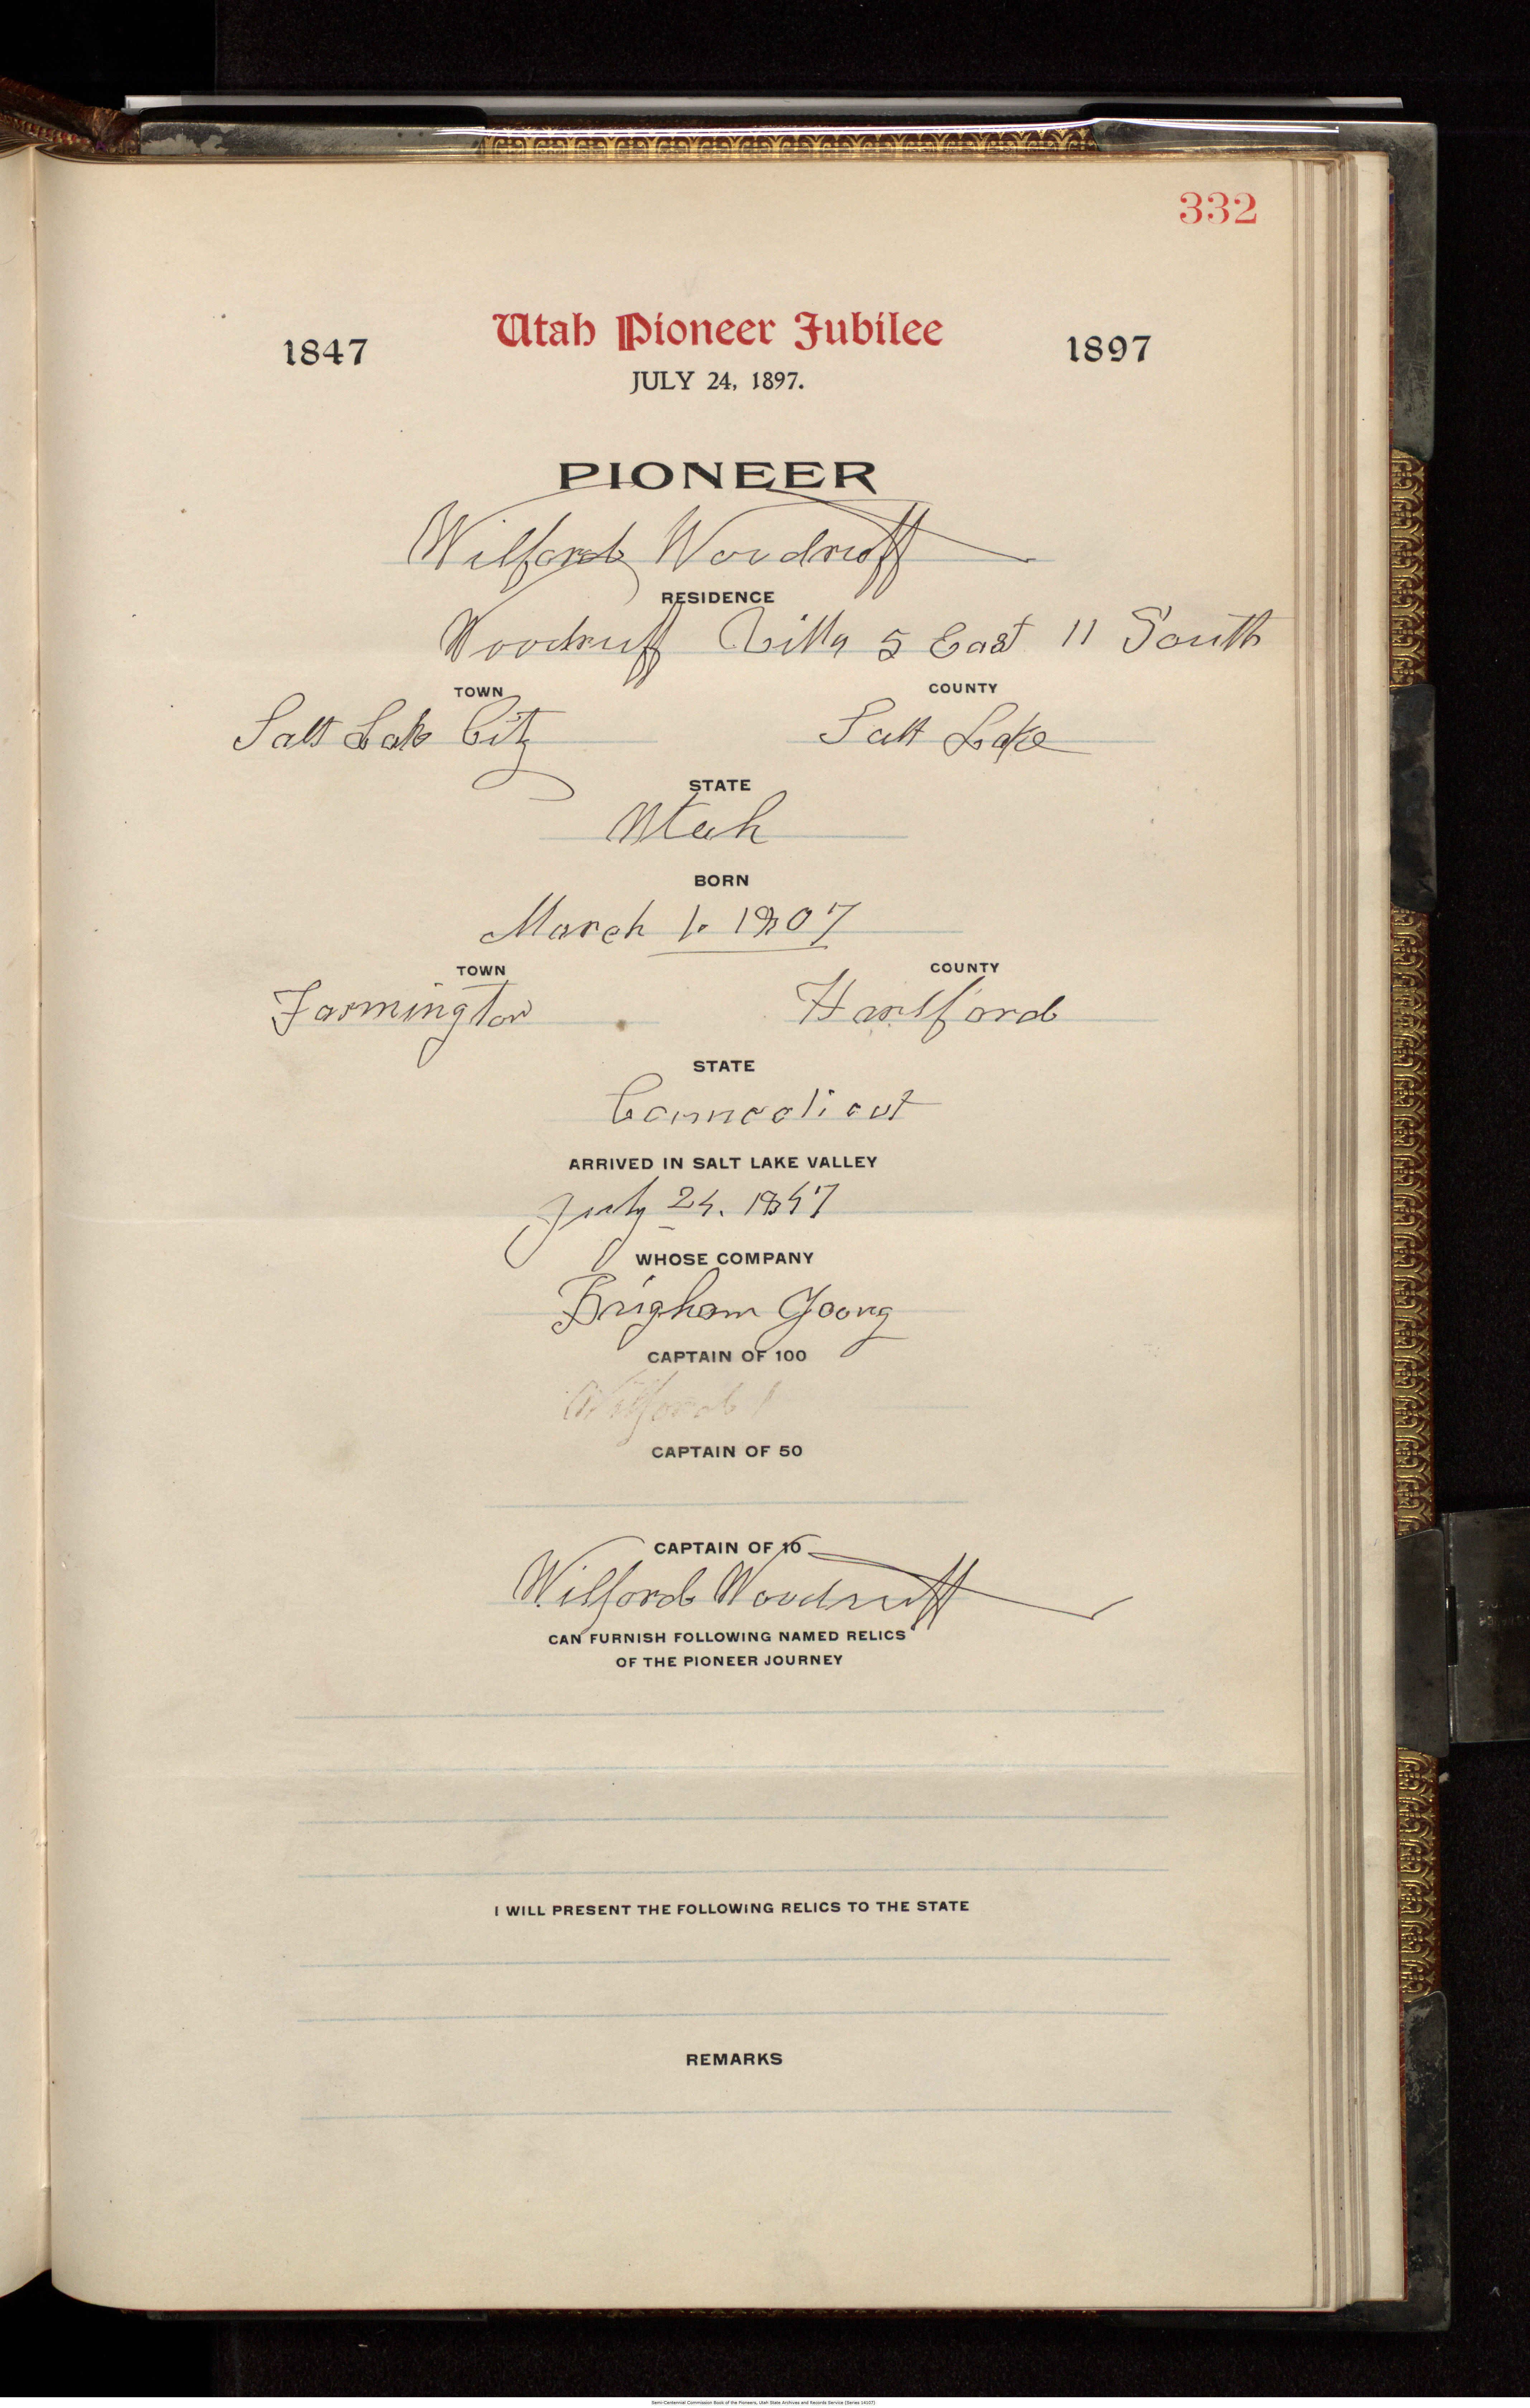 332
1847 Utah Pioneer Jubilee 1897
JULY 24, 1897.
PIONEER
Wilford Woodruff
RESIDENCE
Woodruff Villa 5 East 11 South
TOWN COUNTY
Salt Lake City Salt Lake
STATE
Utah
BORN
March 1. 1807
TOWN COUNTY
Farmington Hartford
STATE
Connecticut
ARRIVED IN SALT LAKE VALLEY
July 24. 1847
WHOSE COMPANY
Brigham Young
CAPTAIN OF 100
Wilford
CAPTAIN OF 50
CAPTAIN OF 10
Wilford Woodruff
CAN FURNISH FOLLOWING NAMED RELICS
OF THE PIONEER JOURNEY
I WILL PRESENT THE FOLLOWING RELICS TO THE STATE
REMARKS
Semi-Centennial Commission Book of the Pioneers, Utah State Archives and Records Service (Series 14107)